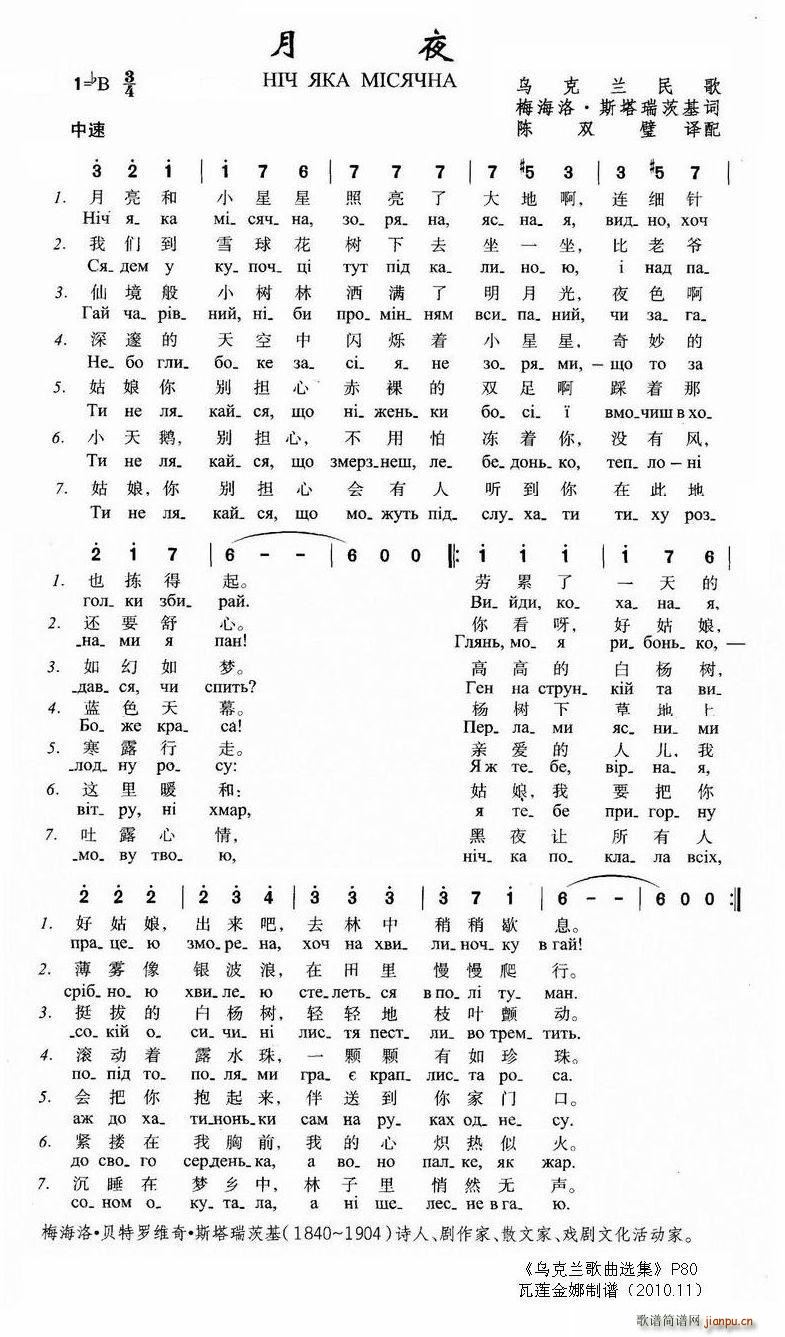 月 夜
НІЧ ЯКА МІСЯЧНА
1=♭B 3/4
乌克兰民歌
梅海洛·斯塔瑞茨基词
中速
陈双璧译配
3̇ 2̇ 1̇ | 1̇ 7 6 | 7 7 7 | 7 #5 3 | 3 #5 7 |
1. 月亮和 小星星 照亮了 大地啊, 连细针
Ніч я_ ка мі_ сяч_ на, зо_ ря_ на, яс_ на_ я, вид_ но, хоч
2. 我们到 雪球花 树下去 坐一坐, 比老爷
Ся_ дем у ку_ поч_ ці тут під ка_ ли_ но_ ю, і над па_
3. 仙境般 小树林 洒满了 明月光, 夜色啊
Гай ча_ рів_ ний, ні_ би про_ мін_ ням вси_ па_ ний, чи за_ га_
4. 深邃的 天空中 闪烁着 小星星, 奇妙的
Не_ бо гли_ бо_ ке за_ сі_ я_ не зо_ ря_ ми, – що то за
5. 姑娘你 别担心 赤裸的 双足啊 踩着那
Ти не ля_ кай_ ся, що ні_ жень_ ки бо_ сі_ ї вмо_ чиш в хо_
6. 小天鹅, 别担心, 不用怕 冻着你, 没有风,
Ти не ля_ кай_ ся, що змерз_ неш, ле_ бе_ донь_ ко, теп_ ло – ні
7. 姑娘,你 别担心 会有人 听到你 在此地
Ти не ля_ кай_ ся, що мо_ жуть під_ слу_ ха_ ти ти_ ху роз_
2̇ 1̇ 7 | 6 - - | 6 0 0 ‖: 1̇ 1̇ 1̇ | 1̇ 7 6 |
1. 也拣得 起。 劳累了 一天的
гол_ ки зби_ рай. Ви_ йди, ко_ ха_ на_ я,
2. 还要舒 心。 你看呀, 好姑娘,
_на_ ми я пан! Глянь, мо_ я ри_ бонь_ ко, —
3. 如幻如 梦。 高高的 白杨树,
_дав_ ся, чи спить? Ген на струн_ кій та ви_
4. 蓝色天 幕。 杨树下 草地上
Бо_ же кра_ са! Пер_ ла_ ми яс_ ни_ ми
5. 寒露行 走。 亲爱的 人儿,我
_лод_ ну ро_ су: Я ж те_ бе, вір_ на_ я,
6. 这里暖 和: 姑娘,我 要把你
віт_ ру, ні хмар, я те_ бе при_ гор_ ну
7. 吐露心 情, 黑夜让 所有人
_мо_ ву тво_ ю, ніч_ ка по_ кла_ ла всіх,
2̇ 2̇ 2̇ | 2̇ 3̇ 4̇ | 3̇ 3̇ 3̇ | 3̇ 7 1̇ | 6 - - | 6 0 0 :‖
1. 好姑娘, 出来吧, 去林中 稍稍歇 息。
пра_ це_ ю змо_ ре_ на, хоч на хви_ ли_ ноч_ ку в гай!
2. 薄雾像 银波浪, 在田里 慢慢爬 行。
сріб_ но_ ю хви_ ле_ ю сте_ леть_ ся в по_ лі ту_ ман.
3. 挺拔的 白杨树, 轻轻地 枝叶颤 动。
_со_ кій о_ си_ чи_ ні лис_ тя пест_ ли_ во трем_ тить.
4. 滚动着 露水珠, 一颗颗 有如珍 珠。
по_ під то_ по_ ля_ ми гра_ є крап_ лис_ та ро_ са.
5. 会把你 抱起来, 伴送到 你家门 口。
аж до ха_ ти_ нонь_ ки сам на ру_ ках од_ не_ су.
6. 紧搂在 我胸前, 我的心 炽热似 火。
до сво_ го сер_ день_ ка, а во_ но пал_ ке, як жар.
7. 沉睡在 梦乡中, 林子里 悄然无 声。
со_ ном о_ ку_ та_ ла, а ні ше_ лес_ не в га_ ю.
梅海洛·贝特罗维奇·斯塔瑞茨基(1840~1904)诗人、剧作家、散文家、戏剧文化活动家。
《乌克兰歌曲选集》P80
瓦莲金娜制谱（2010.11）
歌谱简谱网
jianpu.cn